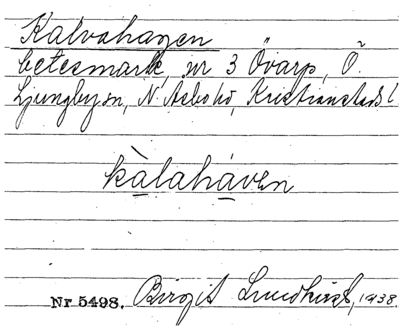 Kalvahagen
betesmark, nr 3 Övarp, Ö.
Ljungby sn, N. Åsbo hd, Kristianstads l
kàlahávən
Nr 5498. Birgit Lundkvist, 1938